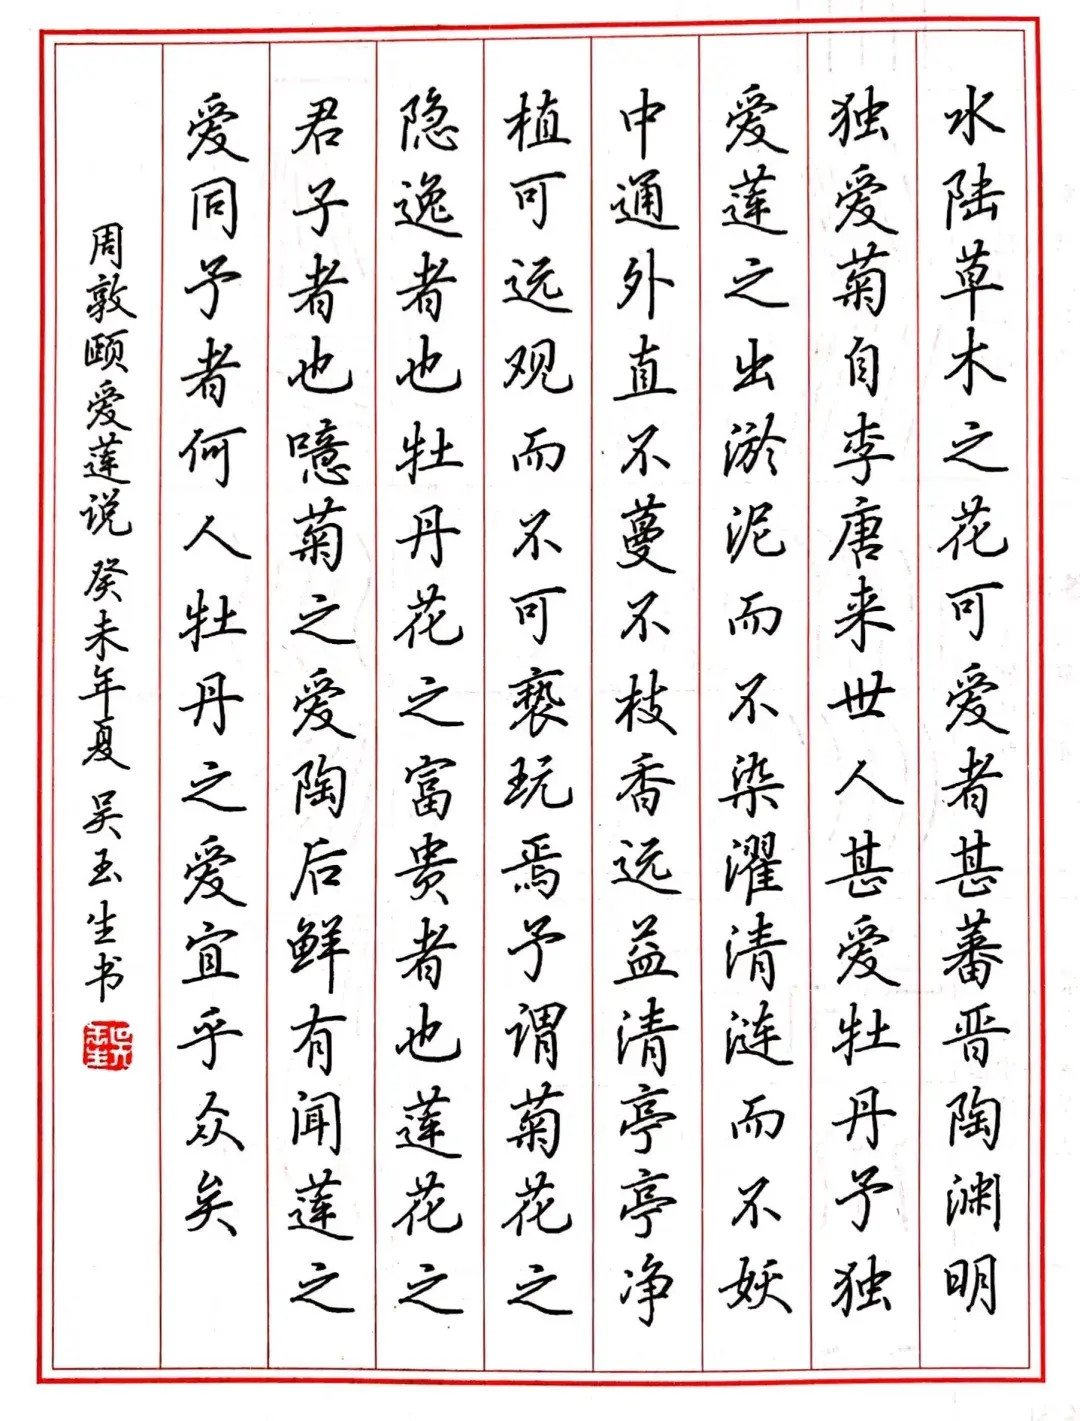 水陆草木之花可爱者甚蕃晋陶渊明
独爱菊自李唐来世人甚爱牡丹予独
爱莲之出淤泥而不染濯清涟而不妖
中通外直不蔓不枝香远益清亭亭净
植可远观而不可亵玩焉予谓菊花之
隐逸者也牡丹花之富贵者也莲花之
君子者也噫菊之爱陶后鲜有闻莲之
爱同予者何人牡丹之爱宜乎众矣
周敦颐爱莲说 癸未年夏 吴玉生书
吴玉生